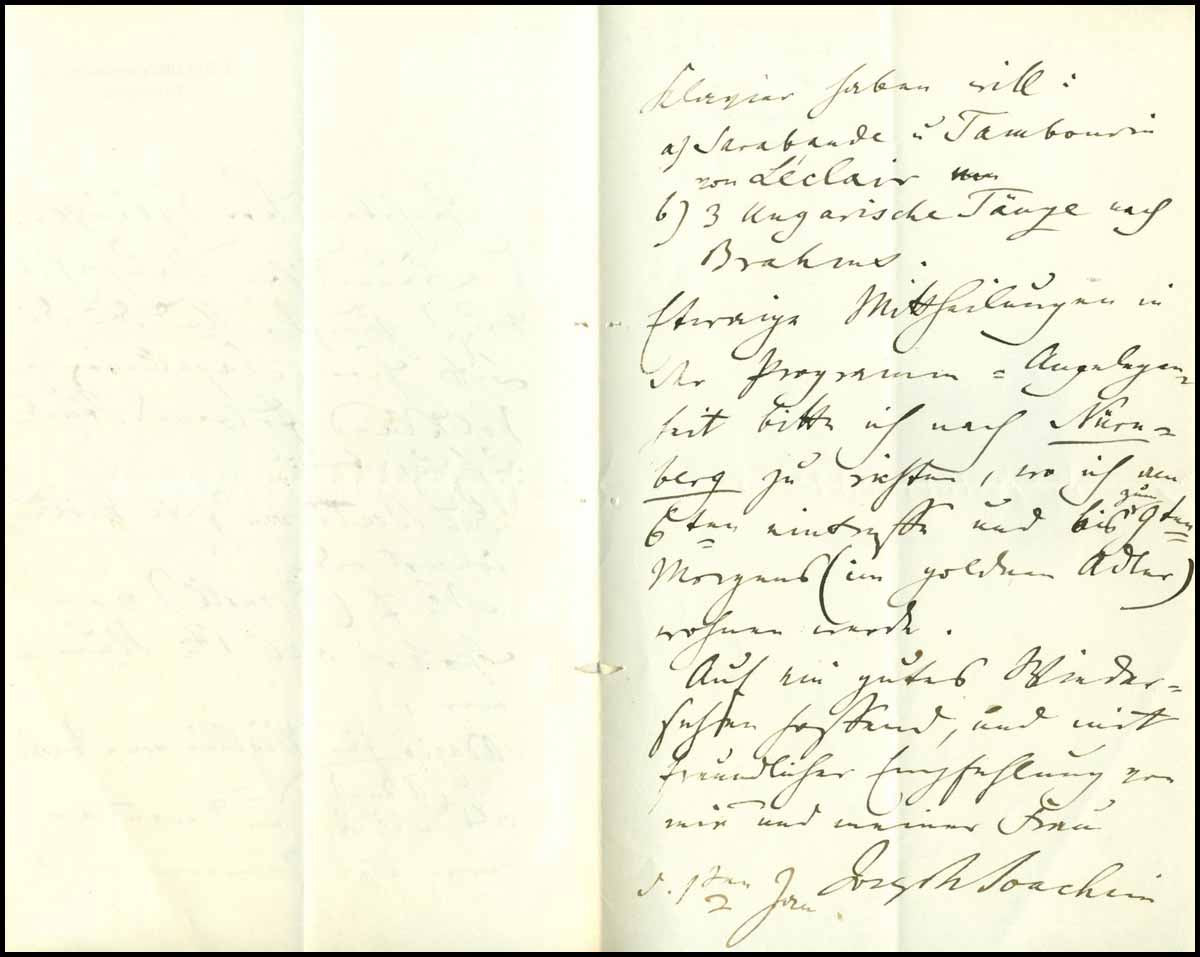 Klavier haben will:
a) Sarabande u Tambourin
von Léclair
b) 3 Ungarische Tänze nach
Brahms.
Etwaige Mittheilungen in
der Programm=Angelegen=
heit bitte ich nach Nürn=
berg zu richten, wo ich am
6ten eintreffe und bis zum 9ten
Morgens (im goldnen Adler)
wohnen werde.
Auf ein gutes Wieder=
sehen hoffend, und mit
freundlicher Empfehlung von
mir und meiner Frau
Joseph Joachim
d. 1ten Jan.